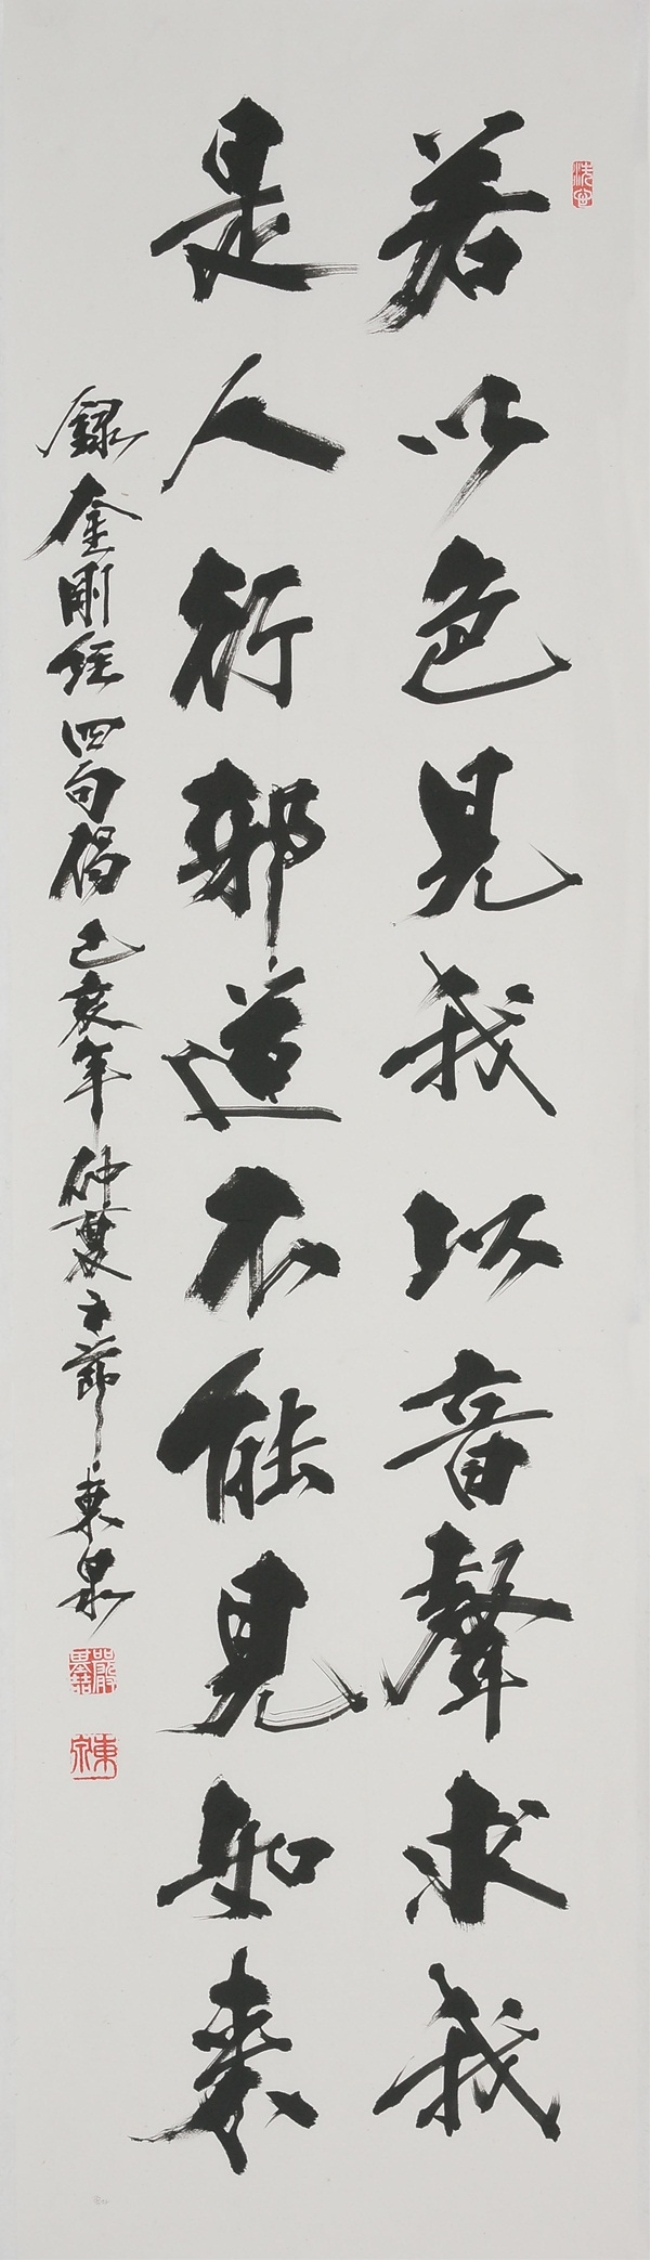 若以色見我以音聲求我
是人行邪道不能見如来
錄金剛經四句偈己亥年仲夏之節東泉